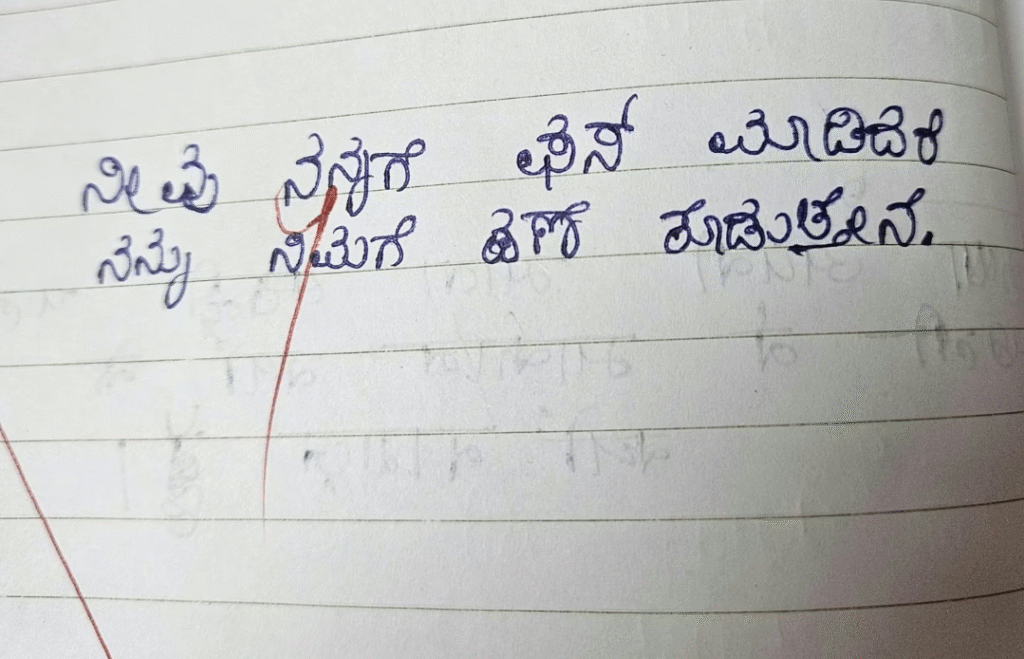 ನೀವು ನನ್ನಗೆ ಫೆಸ್ ಮಾಡಿದರೆ
ನನ್ನು ನಿಮಗೆ ಹಣ ಕೂಡುತ್ತೇನೆ.